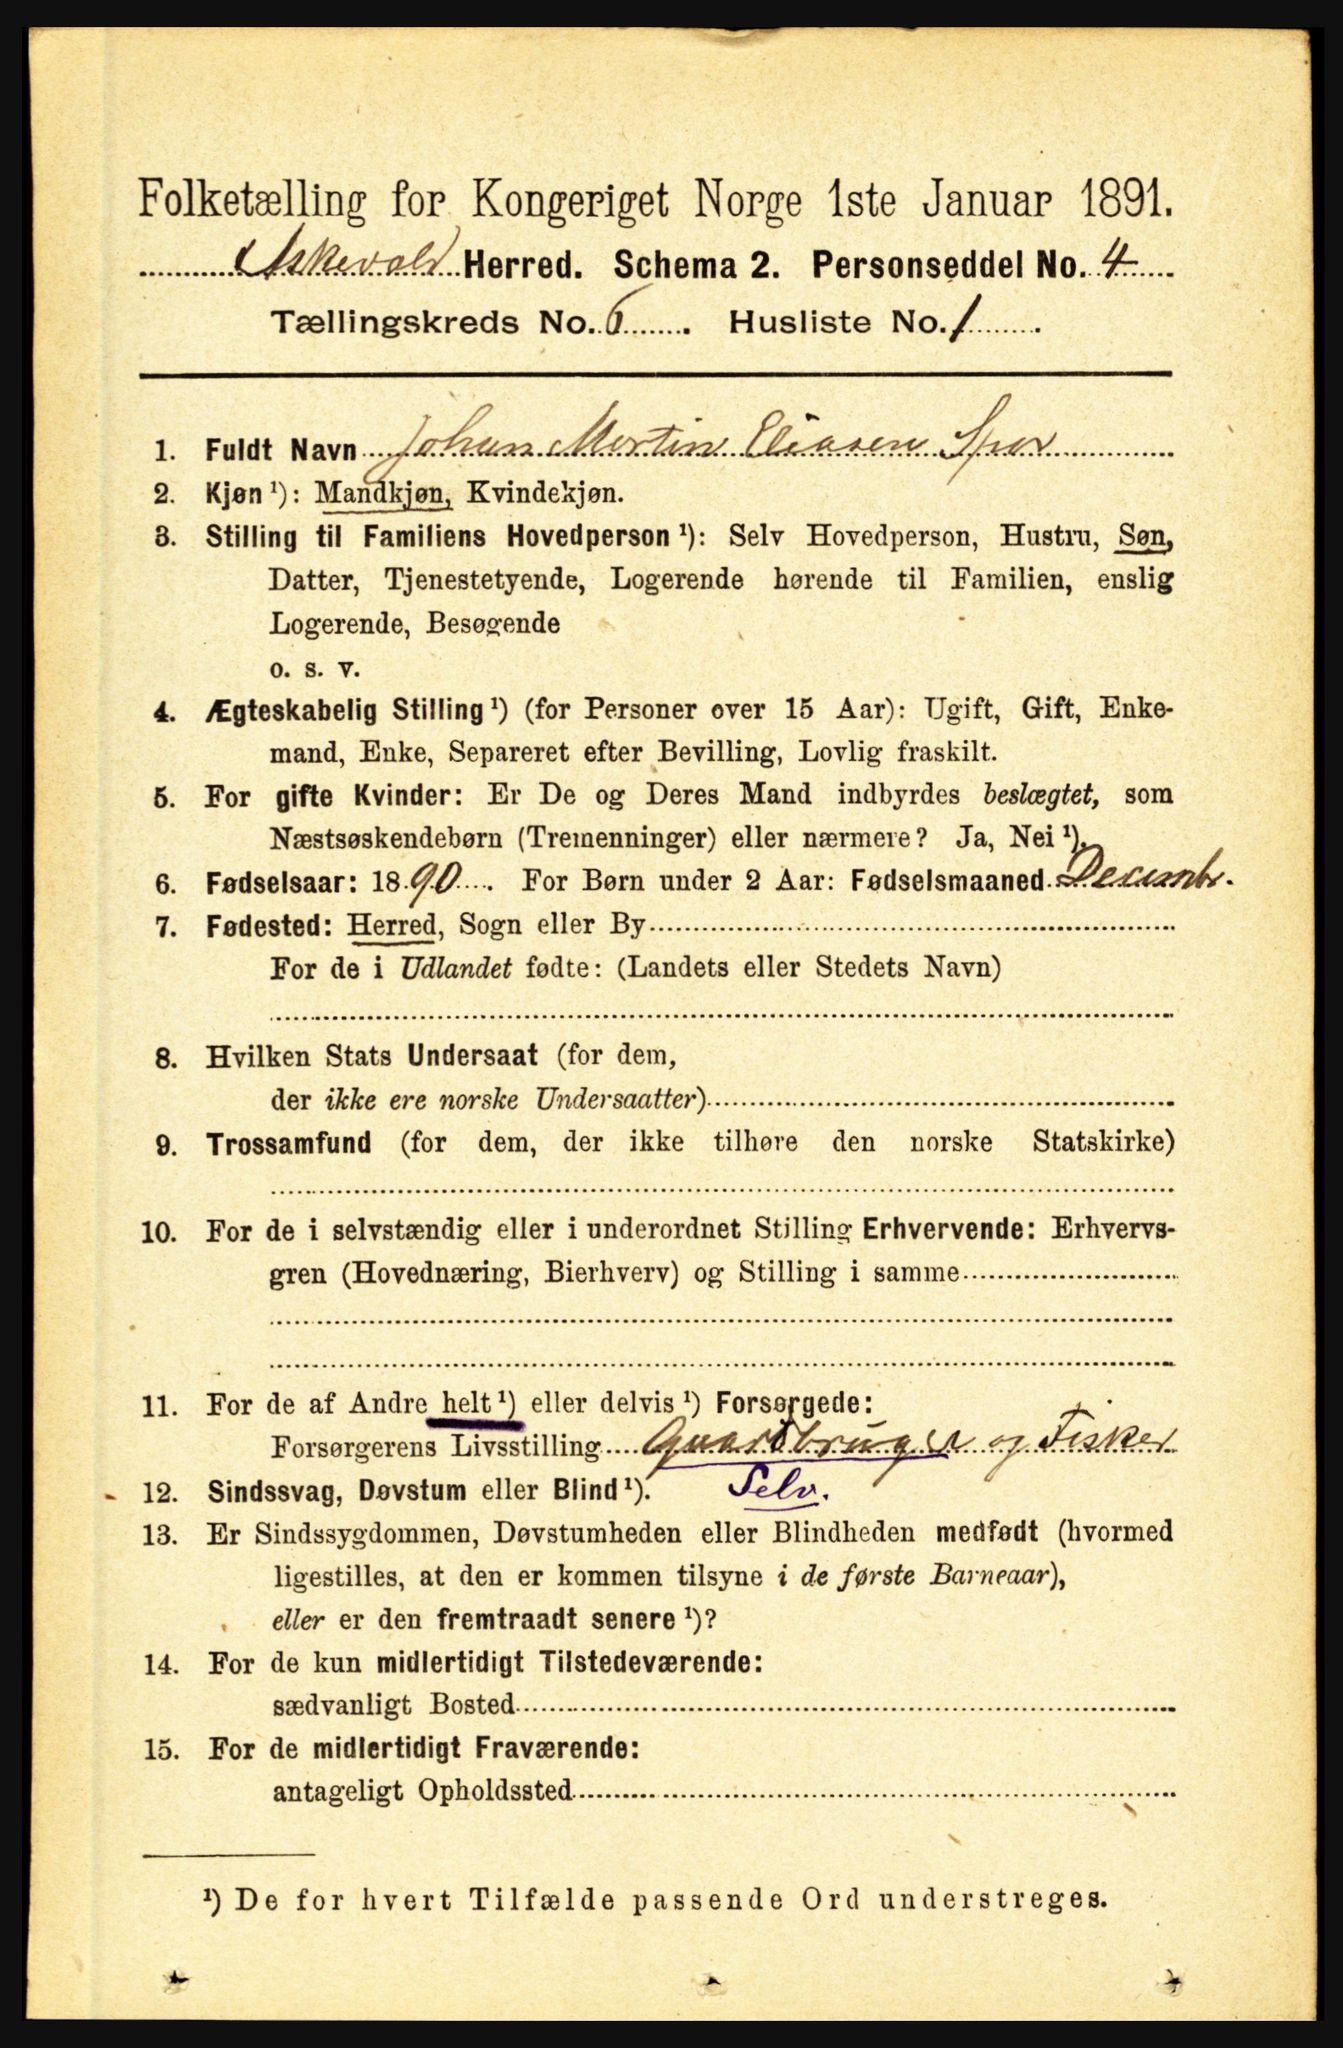 Folketælling for Kongeriget Norge 1ste Januar 1891.
Askevold Herred. Schema 2. Personseddel No. 4
Tællingskreds No. 6. Husliste No. 1.
1. Fuldt Navn Johan Martin Eliasen Spor
2. Kjøn ¹): Mandkjøn, Kvindekjøn.
3. Stilling til Familiens Hovedperson ¹): Selv Hovedperson, Hustru, Søn,
Datter, Tjenestetyende, Logerende hørende til Familien, enslig
Logerende, Besøgende
o. s. v.
4. Ægteskabelig Stilling ¹) (for Personer over 15 Aar): Ugift, Gift, Enke-
mand, Enke, Separeret efter Bevilling, Lovlig fraskilt.
5. For gifte Kvinder: Er De og Deres Mand indbyrdes beslægtet, som
Næstsøskendebørn (Tremenninger) eller nærmere? Ja, Nei ¹).
6. Fødselsaar: 1890. For Børn under 2 Aar: Fødselsmaaned Decembr.
7. Fødested: Herred, Sogn eller By
For de i Udlandet fødte: (Landets eller Stedets Navn)
8. Hvilken Stats Undersaat (for dem,
der ikke ere norske Undersaatter)
9. Trossamfund (for dem, der ikke tilhøre den norske Statskirke)
10. For de i selvstændig eller i underordnet Stilling Erhvervende: Erhvervs-
gren (Hovednæring, Bierhverv) og Stilling i samme
11. For de af Andre helt ¹) eller delvis ¹) Forsørgede:
Forsørgerens Livsstilling Gaardbruger og Fisker
12. Sindssvag, Døvstum eller Blind ¹). Selv.
13. Er Sindssygdommen, Døvstumheden eller Blindheden medfødt (hvormed
ligestilles, at den er kommen tilsyne i de første Barneaar),
eller er den fremtraadt senere ¹)?
14. For de kun midlertidigt Tilstedeværende:
sædvanligt Bosted
15. For de midlertidigt Fraværende:
antageligt Opholdssted
¹) De for hvert Tilfælde passende Ord understreges.